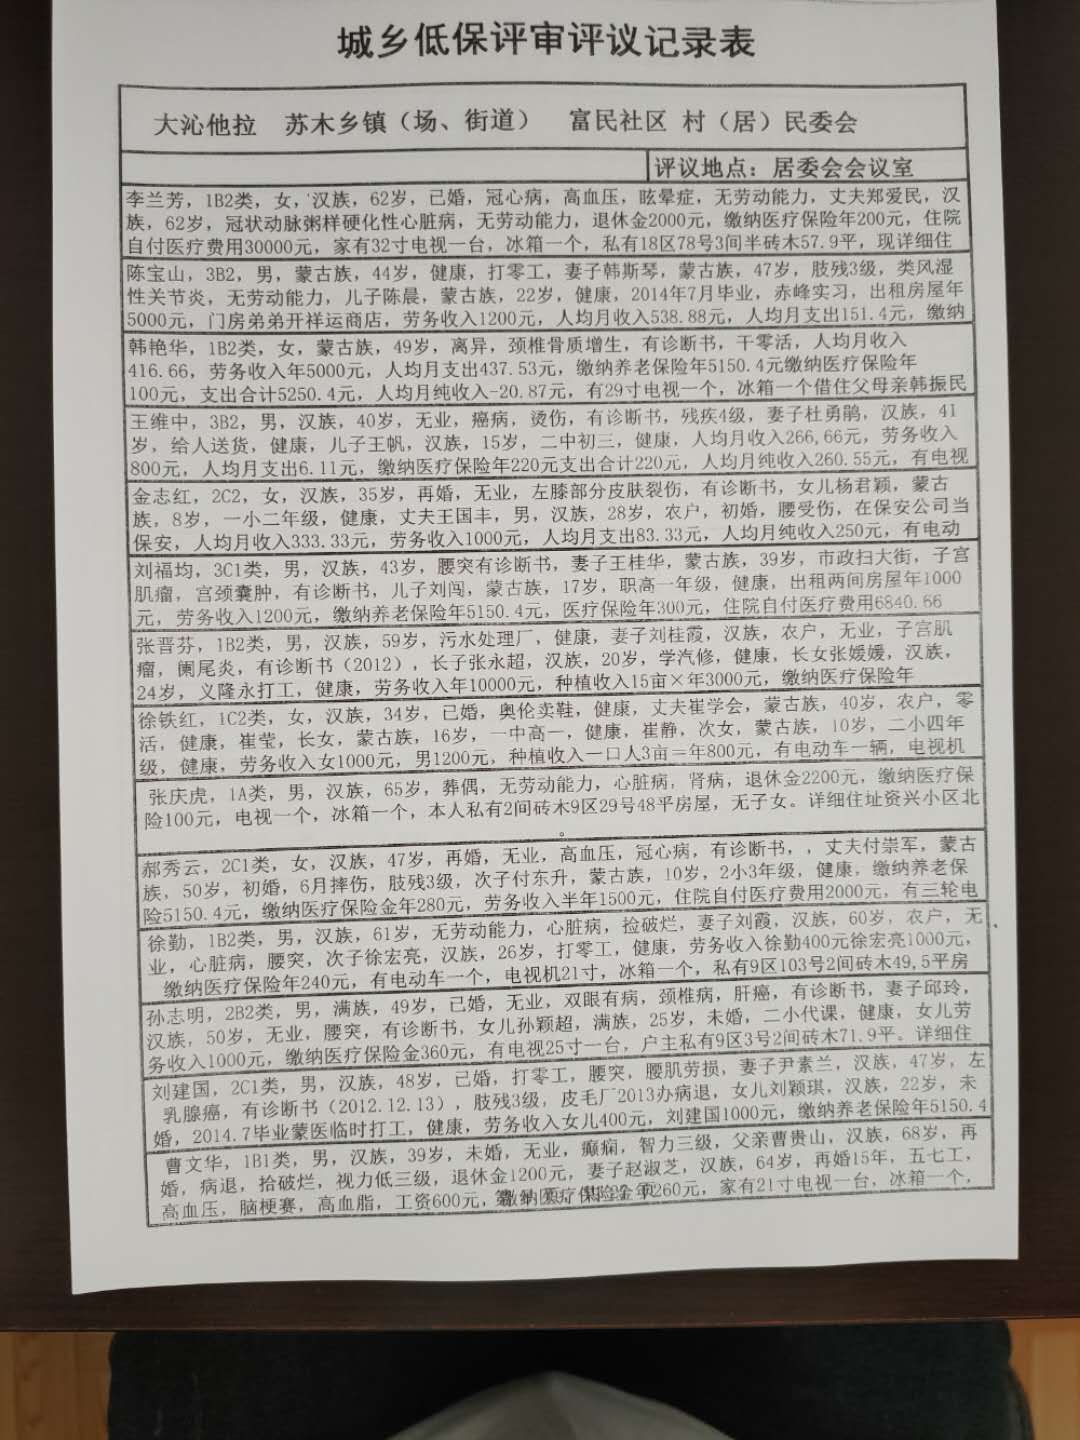 城乡低保评审评议记录表
大沁他拉 苏木乡镇（场、街道） 富民社区 村（居）民委会
评议地点：居委会会议室
李兰芳，1B2类，女，'汉族，62岁，已婚，冠心病，高血压，眩晕症，无劳动能力，丈夫郑爱民，汉
族，62岁，冠状动脉粥样硬化性心脏病，无劳动能力，退休金2000元，缴纳医疗保险年200元，住院
自付医疗费用30000元，家有32寸电视一台，冰箱一个，私有18区78号3间半砖木57.9平，现详细住
陈宝山，3B2，男，蒙古族，44岁，健康，打零工，妻子韩斯琴，蒙古族，47岁，肢残3级，类风湿
性关节炎，无劳动能力，儿子陈晨，蒙古族，22岁，健康，2014年7月毕业，赤峰实习，出租房屋年
5000元，门房弟弟开祥运商店，劳务收入1200元，人均月收入538.88元，人均月支出151.4元，缴纳
韩艳华，1B2类，女，蒙古族，49岁，离异，颈椎骨质增生，有诊断书，干零活，人均月收入
416.66，劳务收入年5000元，人均月支出437.53元，缴纳养老保险年5150.4元缴纳医疗保险年
100元，支出合计5250.4元，人均月纯收入-20.87元，有29寸电视一个，冰箱一个借住父母亲韩振民
王维中，3B2，男，汉族，40岁，无业，癌病，烫伤，有诊断书，残疾4级，妻子杜勇鹃，汉族，41
岁，给人送货，健康，儿子王帆，汉族，15岁，二中初三，健康，人均月收入266,66元，劳务收入
800元，人均月支出6.11元，缴纳医疗保险年220元支出合计220元，人均月纯收入260.55元，有电视
金志红，2C2，女，汉族，35岁，再婚，无业，左膝部分皮肤裂伤，有诊断书，女儿杨君颖，蒙古
族，8岁，一小二年级，健康，丈夫王国丰，男，汉族，28岁，农户，初婚，腰受伤，在保安公司当
保安，人均月收入333.33元，劳务收入1000元，人均月支出83.33元，人均月纯收入250元，有电动
刘福均，3C1类，男，汉族，43岁，腰突有诊断书，妻子王桂华，蒙古族，39岁，市政扫大街，子宫
肌瘤，宫颈囊肿，有诊断书，儿子刘闯，蒙古族，17岁，职高一年级，健康，出租两间房屋年1000
元，劳务收入1200元，缴纳养老保险年5150.4元，医疗保险年300元，住院自付医疗费用6840.66
张晋芬，1B2类，男，汉族，59岁，污水处理厂，健康，妻子刘桂霞，汉族，农户，无业，子宫肌
瘤，阑尾炎，有诊断书（2012），长子张永超，汉族，20岁，学汽修，健康，长女张媛媛，汉族，
24岁，义隆永打工，健康，劳务收入年10000元，种植收入15亩×年3000元，缴纳医疗保险年
徐铁红，1C2类，女，汉族，34岁，已婚，奥伦卖鞋，健康，丈夫崔学会，蒙古族，40岁，农户，零
活，健康，崔莹，长女，蒙古族，16岁，一中高一，健康，崔静，次女，蒙古族，10岁，二小四年
级，健康，劳务收入女1000元，男1200元，种植收入一口人3亩＝年800元，有电动车一辆，电视机
张庆虎，1A类，男，汉族，65岁，葬偶，无劳动能力，心脏病，肾病，退休金2200元，缴纳医疗保
险100元，电视一个，冰箱一个，本人私有2间砖木9区29号48平房屋，无子女。详细住址资兴小区北
。
郝秀云，2C1类，女，汉族，47岁，再婚，无业，高血压，冠心病，有诊断书，，丈夫付崇军，蒙古
族，50岁，初婚，6月摔伤，肢残3级，次子付东升，蒙古族，10岁，2小3年级，健康，缴纳养老保
险5150.4元，缴纳医疗保险金年280元，劳务收入半年1500元，住院自付医疗费用2000元，有三轮电
徐勤，1B2类，男，汉族，61岁，无劳动能力，心脏病，捡破烂，妻子刘霞，汉族，60岁，农户，无
业，心脏病，腰突，次子徐宏亮，汉族，26岁，打零工，健康，劳务收入徐勤400元徐宏亮1000元，
缴纳医疗保险年240元，有电动车一个，电视机21寸，冰箱一个，私有9区103号2间砖木49,5平房
孙志明，2B2类，男，满族，49岁，已婚，无业，双眼有病，颈椎病，肝癌，有诊断书，妻子邱玲，
汉族，50岁，无业，腰突，有诊断书，女儿孙颖超，满族，25岁，未婚，二小代课，健康，女儿劳
务收入1000元，缴纳医疗保险金360元，有电视25寸一台，户主私有9区3号2间砖木71.9平。详细住
刘建国，2C1类，男，汉族，48岁，已婚，打零工，腰突，腰肌劳损，妻子尹素兰，汉族，47岁，左
乳腺癌，有诊断书（2012.12.13），肢残3级，皮毛厂2013办病退，女儿刘颖琪，汉族，22岁，未
婚，2014.7毕业蒙医临时打工，健康，劳务收入女儿400元，刘建国1000元，缴纳养老保险年5150.4
曹文华，1B1类，男，汉族，39岁，未婚，无业，癫痫，智力三级，父亲曹贵山，汉族，68岁，再
婚，病退，拾破烂，视力低三级，退休金1200元，妻子赵淑芝，汉族，64岁，再婚15年，五七工，
高血压，脑梗赛，高血脂，工资600元，缴纳医疗保险金年260元，家有21寸电视一台，冰箱一个，